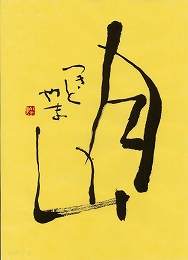 月山
つきと
やま